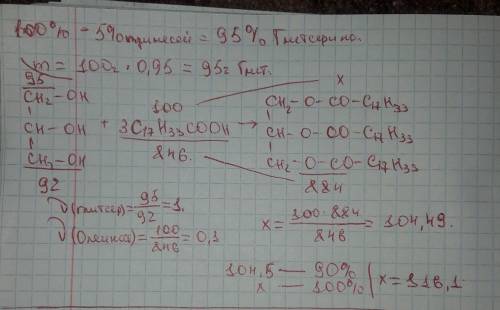 100% - 5% примесей = 95% Глицерина.
m = 100г · 0,95 = 95г Глиц.
95 100 x
CH₂-OH CH₂-O-CO-C₁₇H₃₃
CH-OH + 3C₁₇H₃₃COOH → CH-O-CO-C₁₇H₃₃
CH₂-OH 846. CH₂-O-CO-C₁₇H₃₃
92 884
ν(глицер)=95/92=1.
ν(Олеинов)=100/846=0,1
x = 100·884/846 = 104,49.
104,5 — 90%
x — 100% | x = 116,1